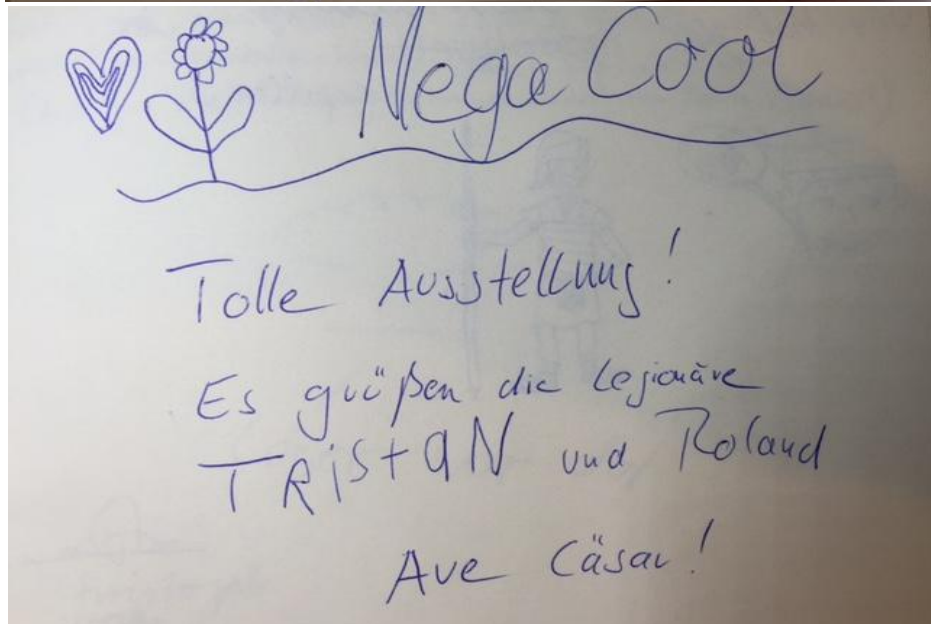 Mega Cool
Tolle Ausstellung!
Es grüßen die Legionäre
TRiStaN und Roland
Ave Cäsar!